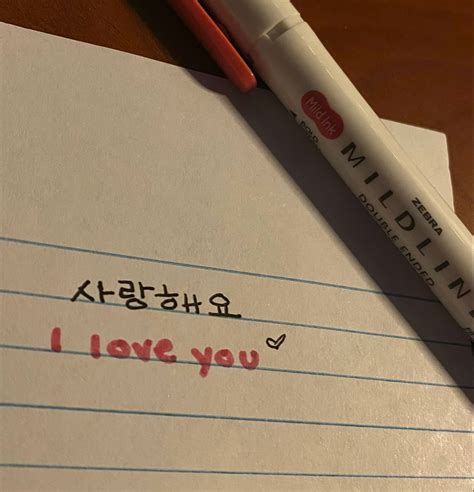 Mild Ink
BOLD
ZEBRA
MILDLINE
DOUBLE ENDED
사랑해요
I love you ♡